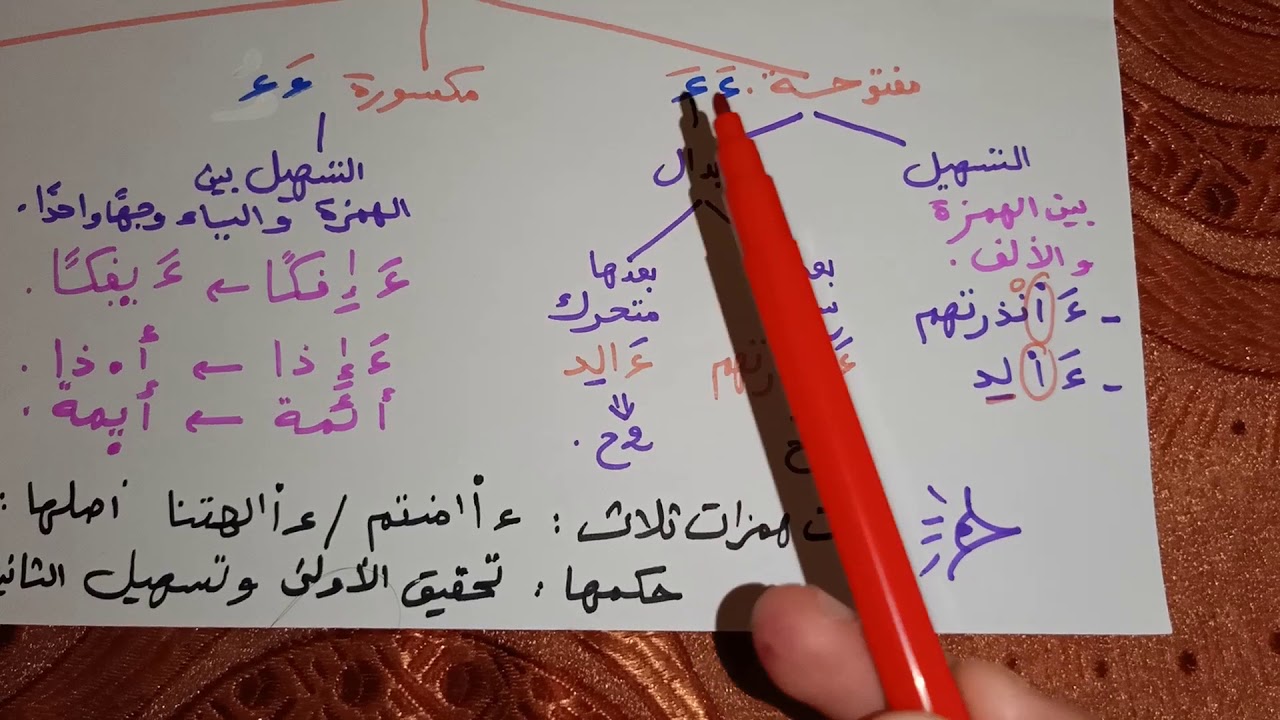 مفتوحة . ءَ ءَ
التسهيل
بين الهمزة
والألف .
- ءَ أنْذرتهم
- ءَ ألِد
بعدها
متحرك
ءَالِد
2ح .
مكسورة ءَ ء
التسهيل بين
الهمزة والياء وجهًا واحدًا .
ءَإِفكًا ← ءَيفكًا .
ءَإِذا ← أ.ذا .
أئمة ← أيمة .
همزات ثلاث : ءأامنتم / ءأالهتنا أصلها :
حكمها : تحقيق الأولى وتسهيل